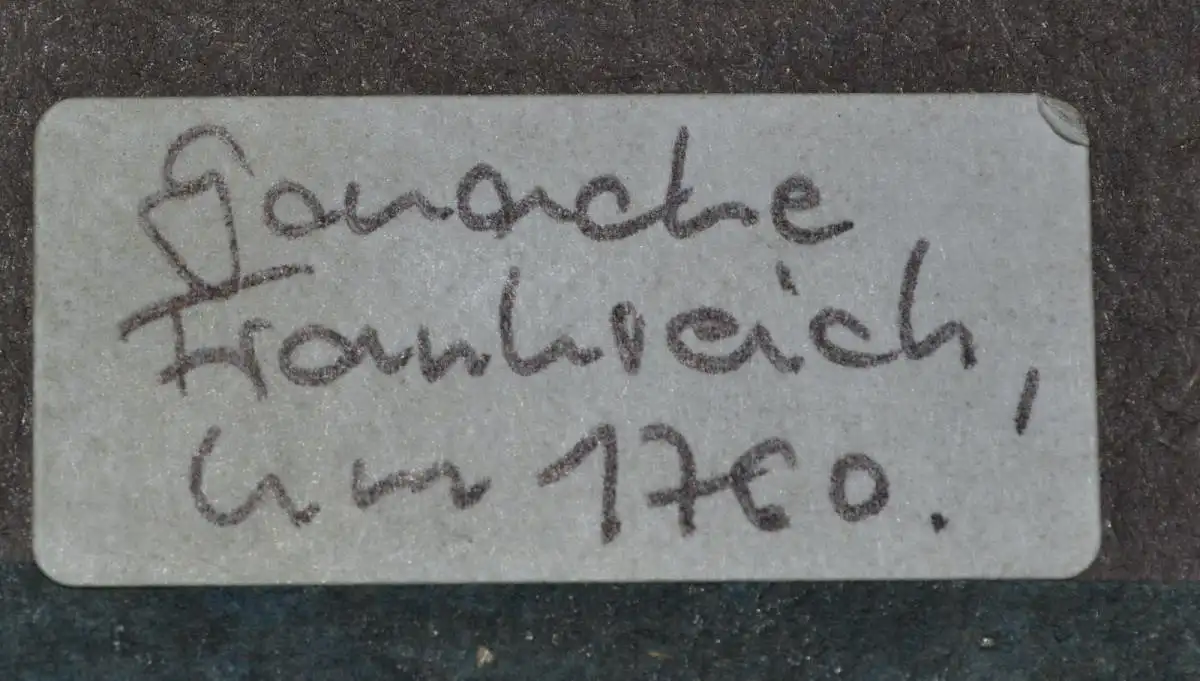 Gouache
Frankreich,
um 1760.